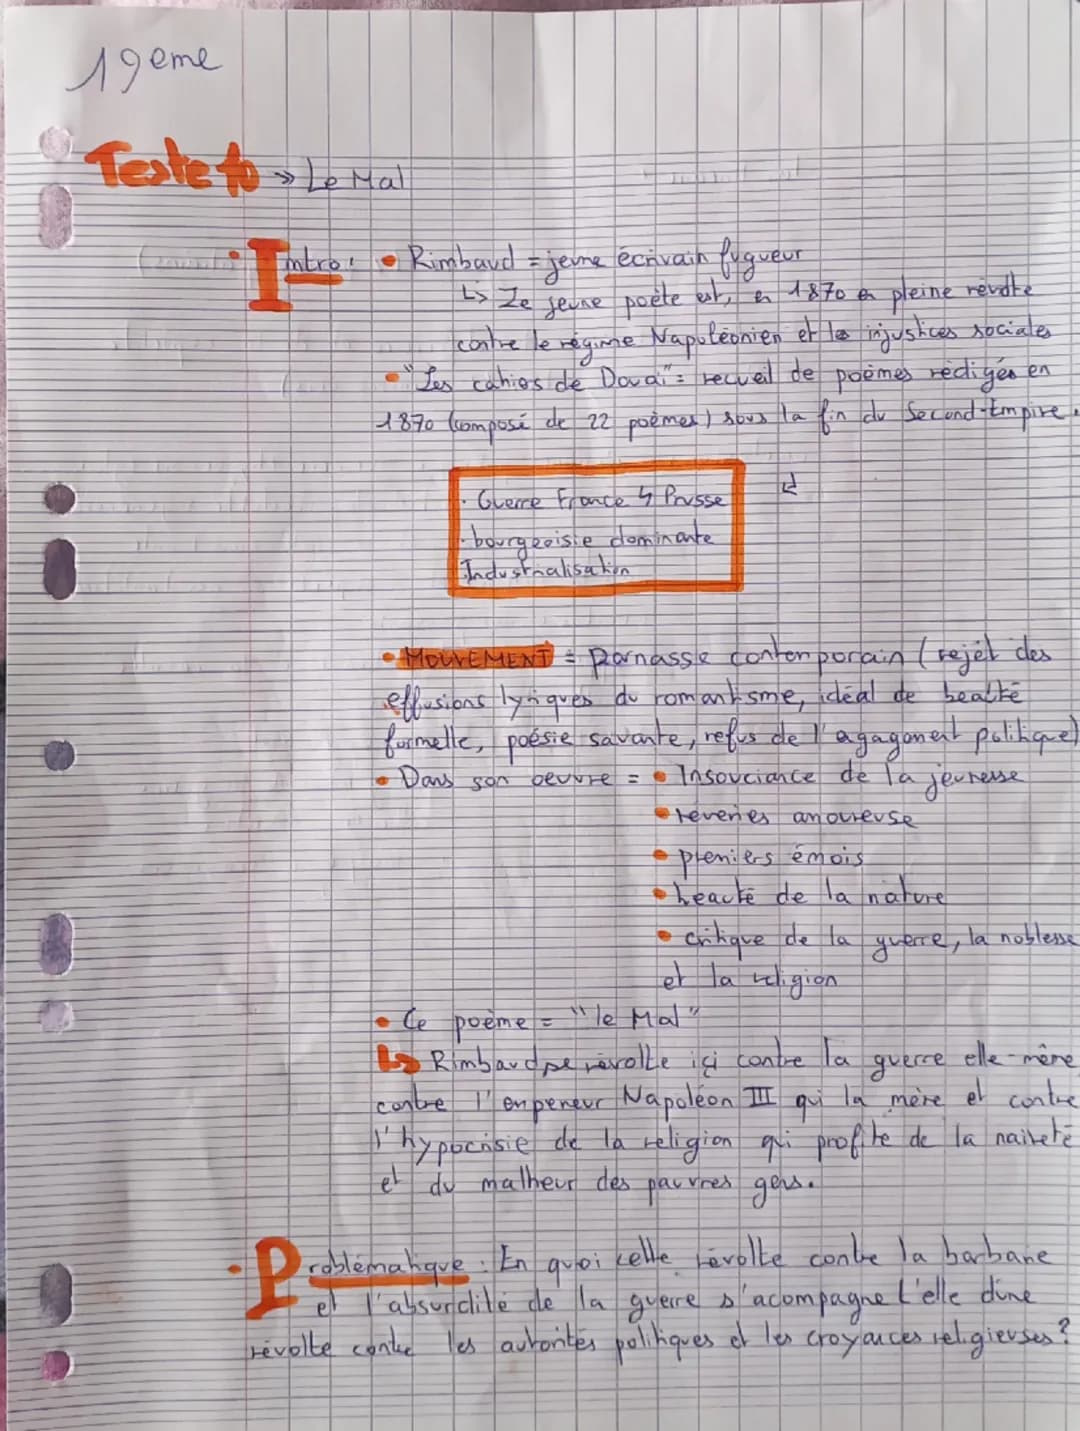 19eme
Texte 10 → Le Mal
• Intro: • Rimbaud = jeune écrivain fugueur
↳ Le jeune poète est, en 1870 en pleine révolte
contre le régime Napoléonien et les injustices sociales
• "Les cahiers de Douai" = recueil de poèmes rédigés en
1870 (composé de 22 poèmes) sous la fin du Second-Empire.
· Guerre France ↯ Prusse
· bourgeoisie dominante
· Industrialisation
• MOUVEMENT = Parnasse contemporain (rejet des
effusions lyriques du romantisme, idéal de beauté
formelle, poésie savante, refus de l'agagement politique)
• Dans son oeuvre = • Insouciance de la jeunesse
• reveries amoureuse
• premiers émois
• beauté de la nature
• critique de la guerre, la noblesse
et la religion
• Ce poème = "le Mal"
↳ Rimbaud se révolte ici contre la guerre elle-même
contre l'empereur Napoléon III qui la mène et contre
l'hypocrisie de la religion qui profite de la naiveté
et du malheur des pauvres gens.
• Problématique : En quoi cette révolte contre la barbarie
et l'absurdité de la guerre s'acompagne t'elle d'une
révolte contre les autorités politiques et les croyances religieuses?